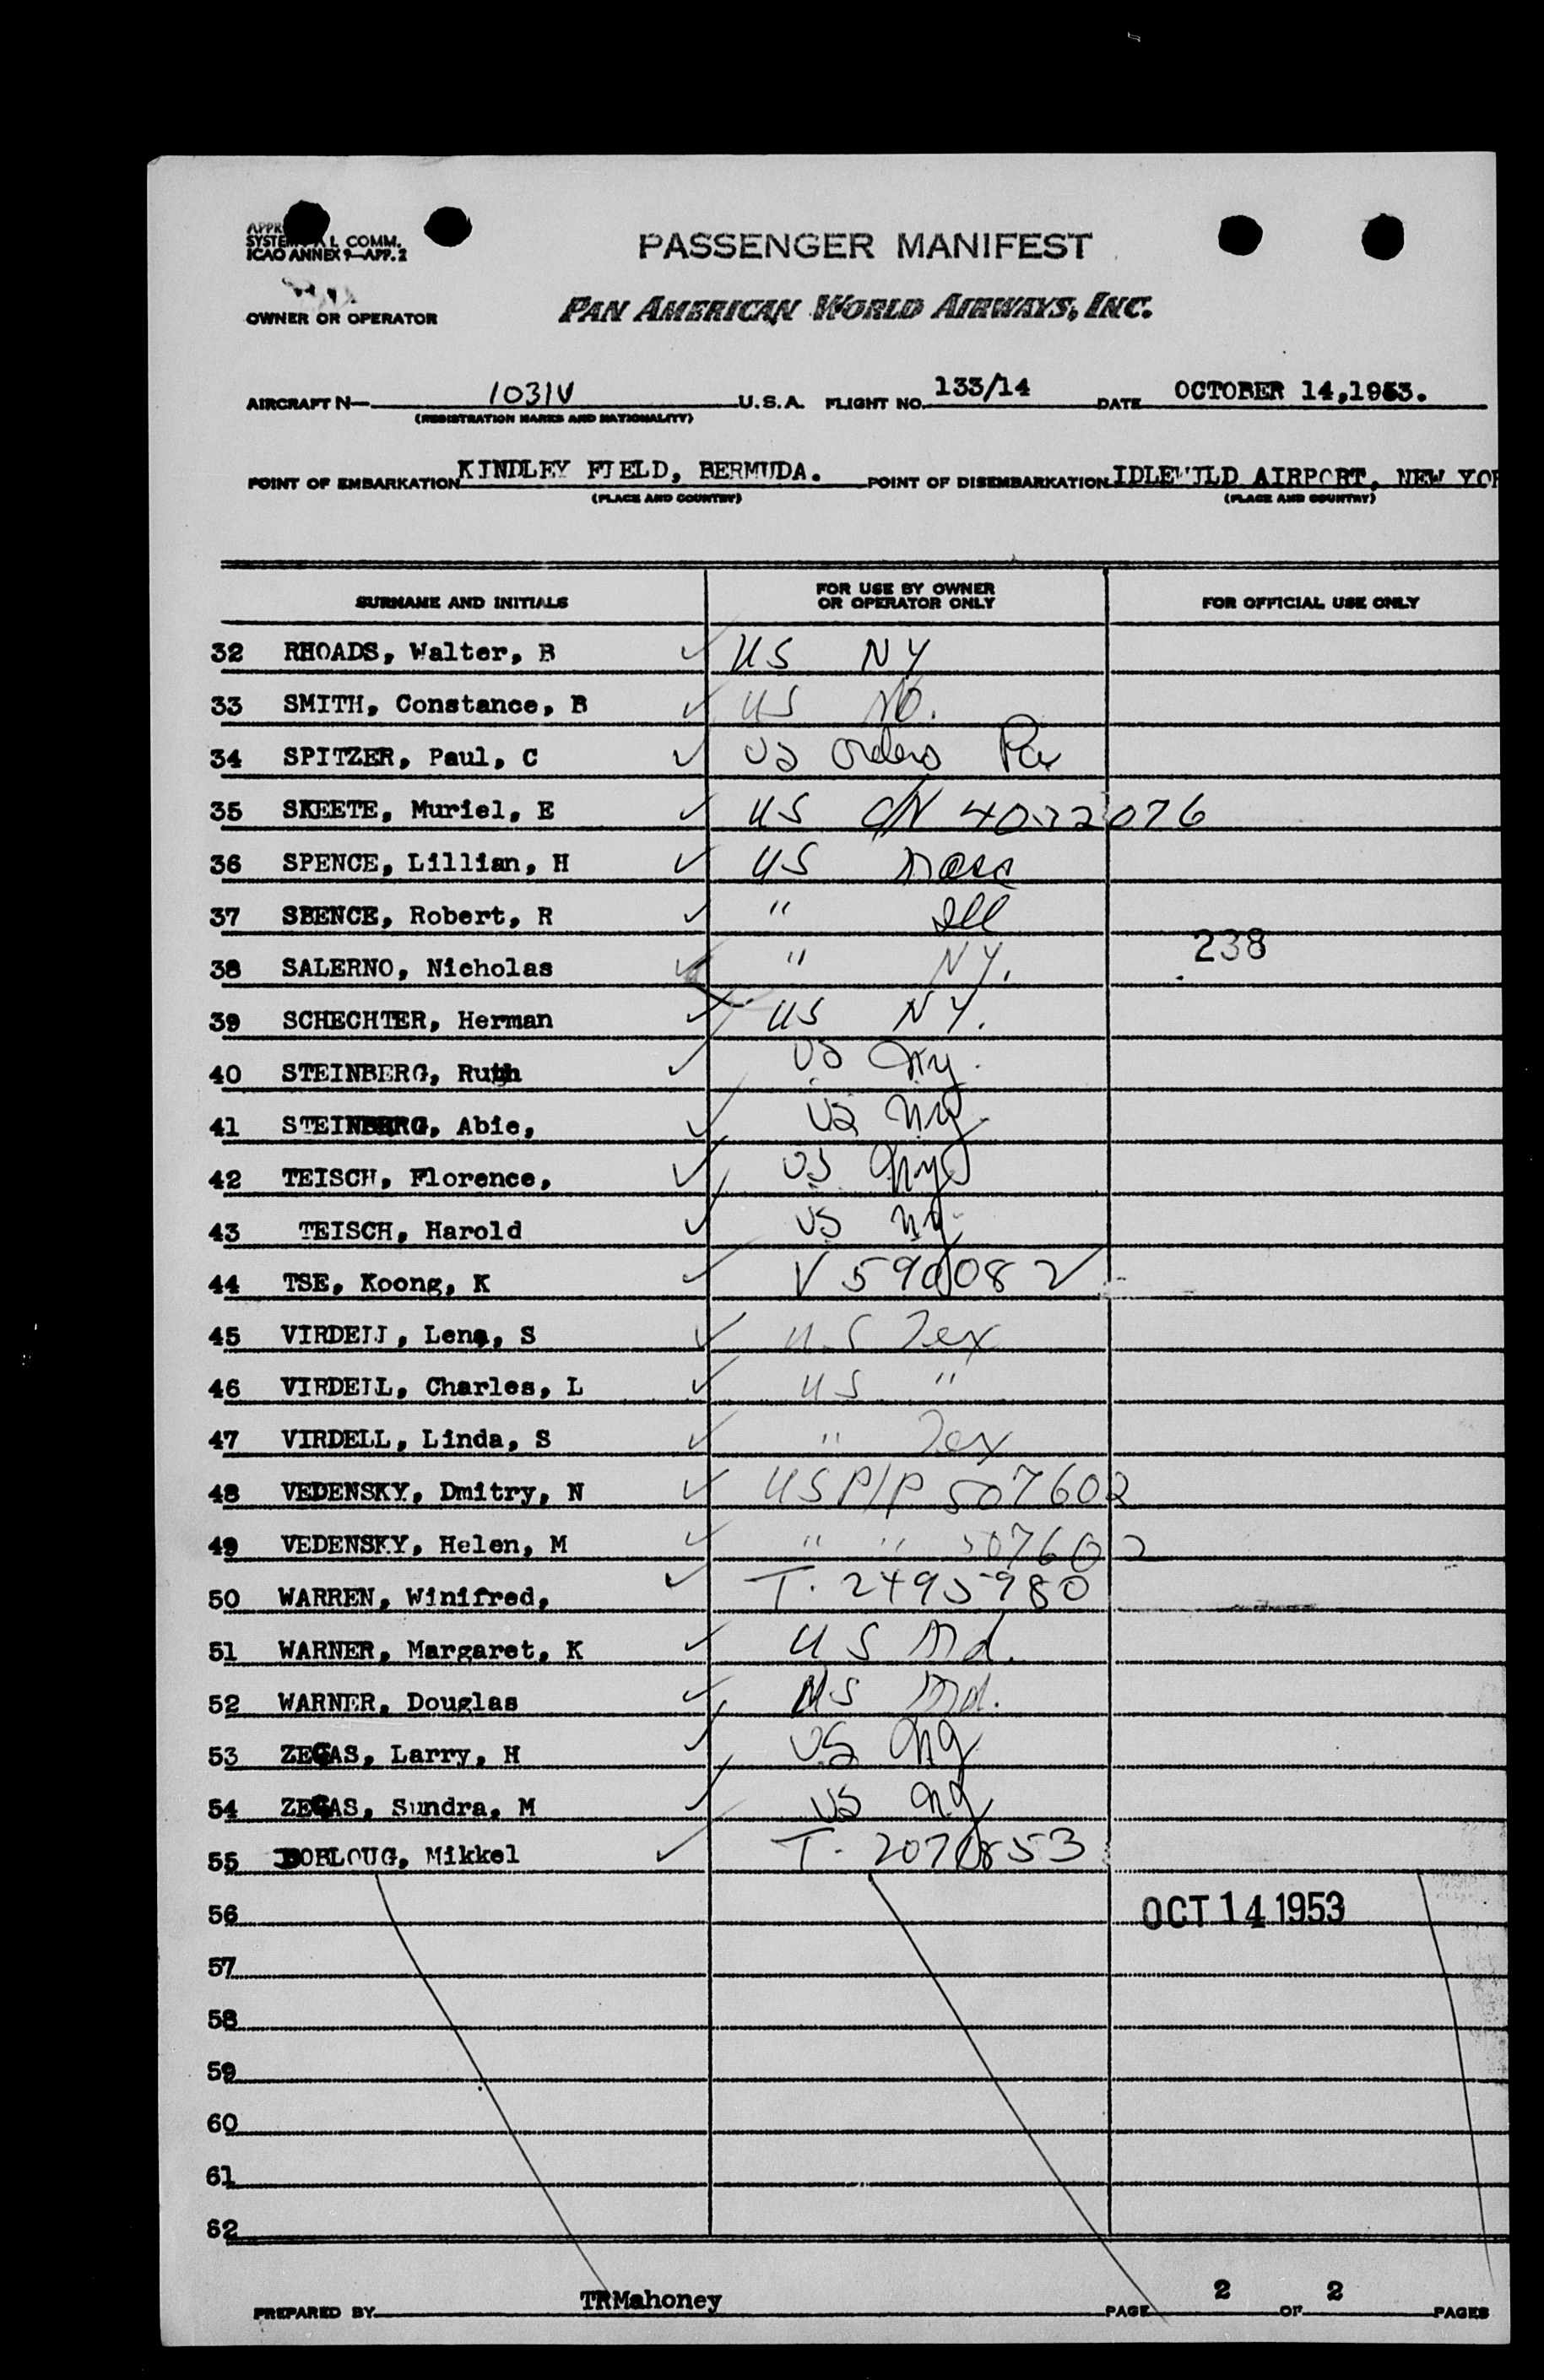 APPR
SYSTE AL COMM.
ICAO ANNEX 9—APP. 2
PASSENGER MANIFEST
OWNER OR OPERATOR PAN AMERICAN WORLD AIRWAYS, INC.
AIRCRAFT N— 1031V U.S.A. FLIGHT NO. 133/14 DATE OCTOBER 14,1953.
(REGISTRATION MARKS AND NATIONALITY)
POINT OF EMBARKATION KINDLEY FIELD, BERMUDA. POINT OF DISEMBARKATION IDLEWILD AIRPORT, NEW YOR
(PLACE AND COUNTRY) (PLACE AND COUNTRY)
SURNAME AND INITIALS FOR USE BY OWNER OR OPERATOR ONLY FOR OFFICIAL USE ONLY
32 RHOADS, Walter, B ✓ US NY
33 SMITH, Constance, B ✓ US
34 SPITZER, Paul, C ✓ US orders
35 SKEETE, Muriel, E ✓ US C/N 4022076
36 SPENCE, Lillian, H ✓ US Mass
37 SBENCE, Robert, R ✓ " Ill
238
38 SALERNO, Nicholas ✓ " NY.
39 SCHECHTER, Herman ✓ US NY.
40 STEINBERG, Ruth ✓ US Ny.
41 STEINBERG, Abie, ✓ US Ny.
42 TEISCH, Florence, ✓ US Ny
43 TEISCH, Harold ✓ US Ny.
44 TSE, Koong, K ✓ V 590082
45 VIRDELL, Lena, S ✓ US Tex
46 VIRDELL, Charles, L ✓ US "
47 VIRDELL, Linda, S ✓ " Tex
48 VEDENSKY, Dmitry, N ✓ US P/P 507602
49 VEDENSKY, Helen, M ✓ " " 507602
50 WARREN, Winifred, ✓ T. 2495980
51 WARNER, Margaret, K ✓ US Md.
52 WARNER, Douglas ✓ US Md.
53 ZEGAS, Larry, H ✓ US Ny
54 ZEGAS, Sundra, M ✓ US Ny
55 BORLOUG, Mikkel ✓ T.
56 OCT 14 1953
57
58
59
60
61
62
PREPARED BY TRMahoney PAGE 2 OF 2 PAGES